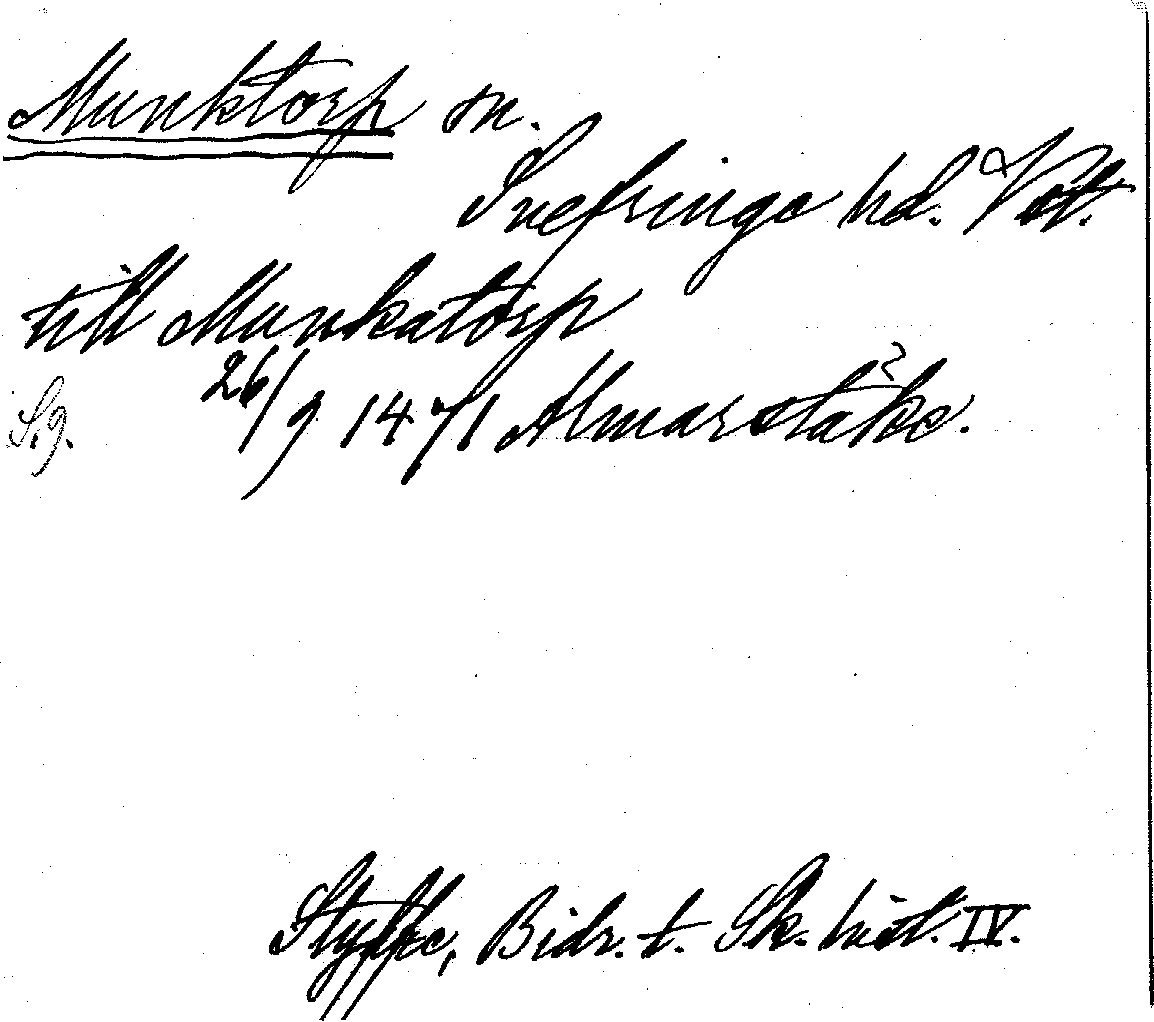 Munktorp sn.
Snefringe hd. Vstm.
till Munkatorp
26/9 1471 Almarstäke.
S.9.
Styffe, Bidr. t. Sk. hist. IV.